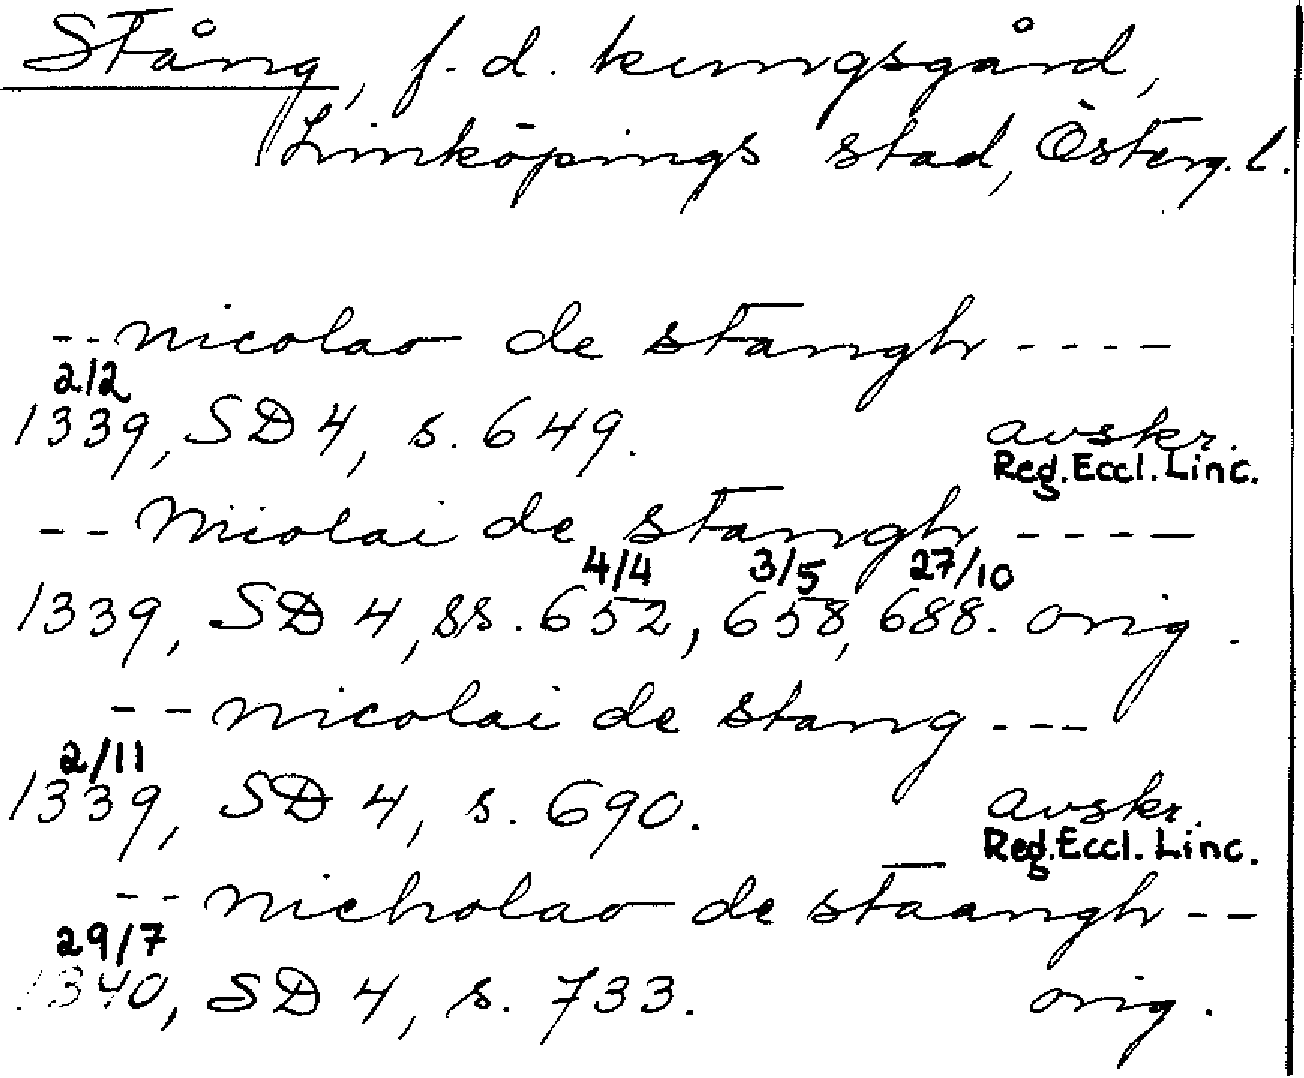 Stång, f.d. kungsgård,
Linköpings stad, Österg.l.
-- nicolao de stangh ----
2/2
1339, SD 4, s. 649. avskr.
Reg. Eccl. Linc.
-- Nicolai de stangh ----
4/4 3/5 27/10
1339, SD 4, ss. 652, 658, 688. orig.
-- nicolai de stang ---
2/11
1339, SD 4, s. 690. avskr.
Reg. Eccl. Linc.
-- nicholao de staangh --
29/7
1340, SD 4, s. 733. orig.